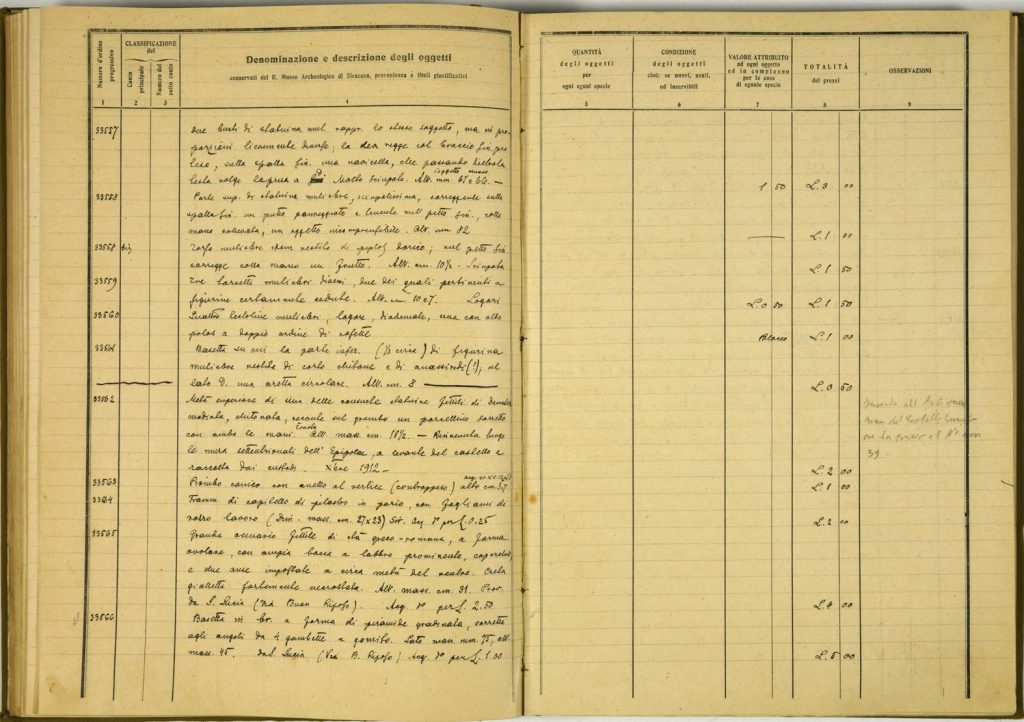 Numero d'ordine progressivo
CLASSIFICAZIONE del
Conto principale
Numero del sotto conto
Denominazione e descrizione degli oggetti
conservati nel R. Museo Archeologico di Siracusa, provenienza e titoli giustificativi
1 2 3 4
33557 due busti di statuina mul. rappr. lo stesso soggetto, ma in pro-
porzioni lievemente diverse; la dea regge col braccio sin. pro
teso, sulla spalla sin. una navicella, che passando
testa volge la prua a Molto sciupate. Alt. mm. 67 e 66. —
33583 Parte sup. di statuina muliebre, sciupatissima, sorreggente sulla
spalla sin. un putto panneggiato e tenente sul petto sin., colla
mano sollevata, un oggetto incomprensibile. Alt. mm. 82
33558 bis Torso muliebre idem vestito di peplos dorico; sul petto sin.
sorregge colla mano un frutto. Alt. cm. 10½. Sciupata
33559 Tre torsetti muliebri diversi, due dei quali pertinenti a
figurine certamente sedute. Alt. cm 10 e 7. Logori
33560 Quattro testoline muliebri, logore, diademate, una con alto
polos a doppio ordine di rosette
33561 Basetta su cui la parte infer. (⅓ circa) di figurina
muliebre vestita di corto chitone e di anassiridi (?), al
lato D. una aretta circolare. Alt. cm. 8
33562 Metà superiore di una delle consuete statuine fittili di Demeter
modiata, chitonata, recante sul grembo un porcellino sorretto
con ambo le mani. Alt. mass. cm. 16½. — Rinvenuta lungo
le mura settentrionali dell' Epipolae, a levante del castello e
raccolta dai custodi. 1912 —
33563 Piombo conico con anello al vertice (contrappeso) alto cm. 3,7
33564 Framm. di capitello di pilastro in pario, con fogliami di
vostro lavoro (Dim. mass. cm. 27x23) Sir. acq. per L. 0.25
33565 Grande ossuario fittile di età greco-romana, a forma
ovolare, con ampia bocca a labbro prominente, coperchio
e due anse impostate a circa metà del ventre. Creta
gialletta fortemente incrostata. Alt. mass. cm. 31. Prov.
da S. Lucia (Via Buon Riposo). Acq. per L. 2.50
33566 Basetta in br. a forma di piramide gradinata, sorretta
agli angoli da 4 gambette a gomito. Lato mass. mm 75, alt.
mass. 45. da S. Lucia (Via B. Riposo) Acq. per L. 1.00
QUANTITÀ degli oggetti per ogni egual specie
CONDIZIONE degli oggetti cioè: se nuovi, usati, od inservibili
VALORE ATTRIBUITO ad ogni oggetto ed in complesso per le cose di eguale specie
TOTALITÀ dei prezzi
OSSERVAZIONI
5 6 7 8 9
1 50 L. 3 00
L. 1 00
L. 1 50
L. 0 50 L. 1 50
Blocco L. 1 00
L. 0 50
L. 2 00
L. 1 00
L. 2 00
L. 4 00
L. 5 00
39